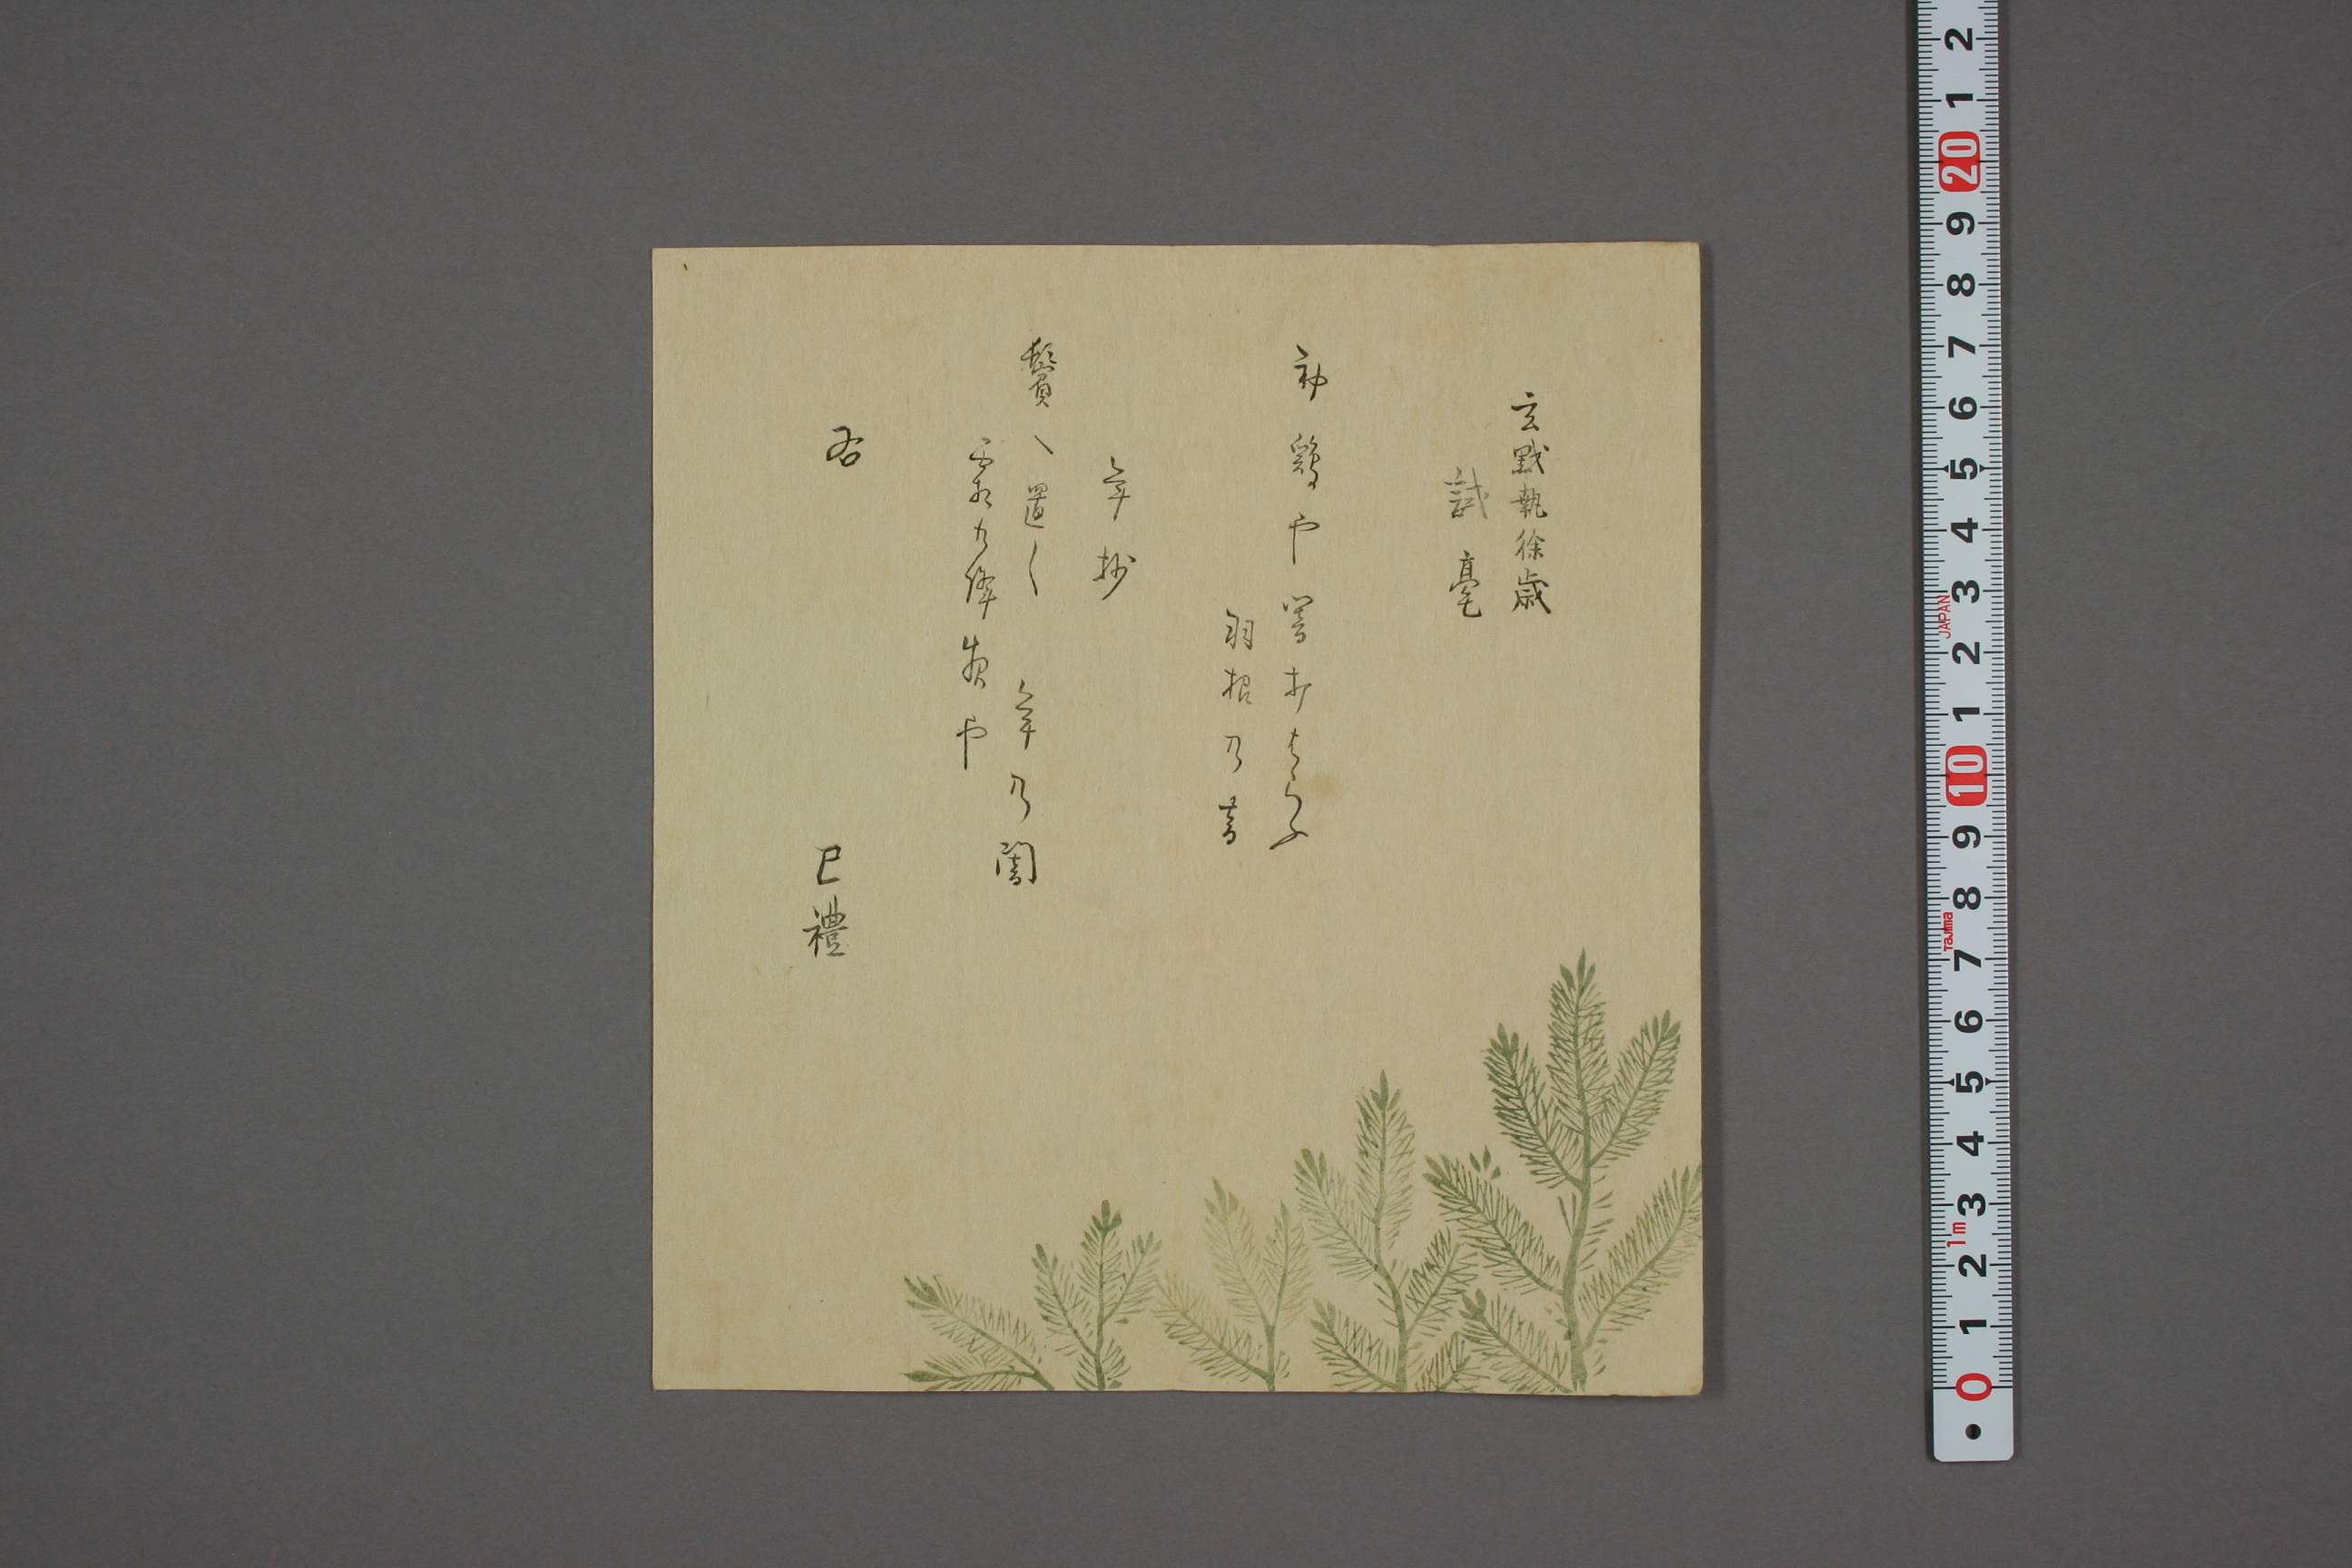 玄黓執徐歳
試毫
初鶏や闇打はらふ
羽根乃音
年抄
鬢へ置く年乃闇
霜か降夜や
右 巳禮
2
1
20
9
8
7
6
5
4
3
JAPAN
2
1
10
9
8
Tajima
7
6
5
4
3
1m
2
1
0